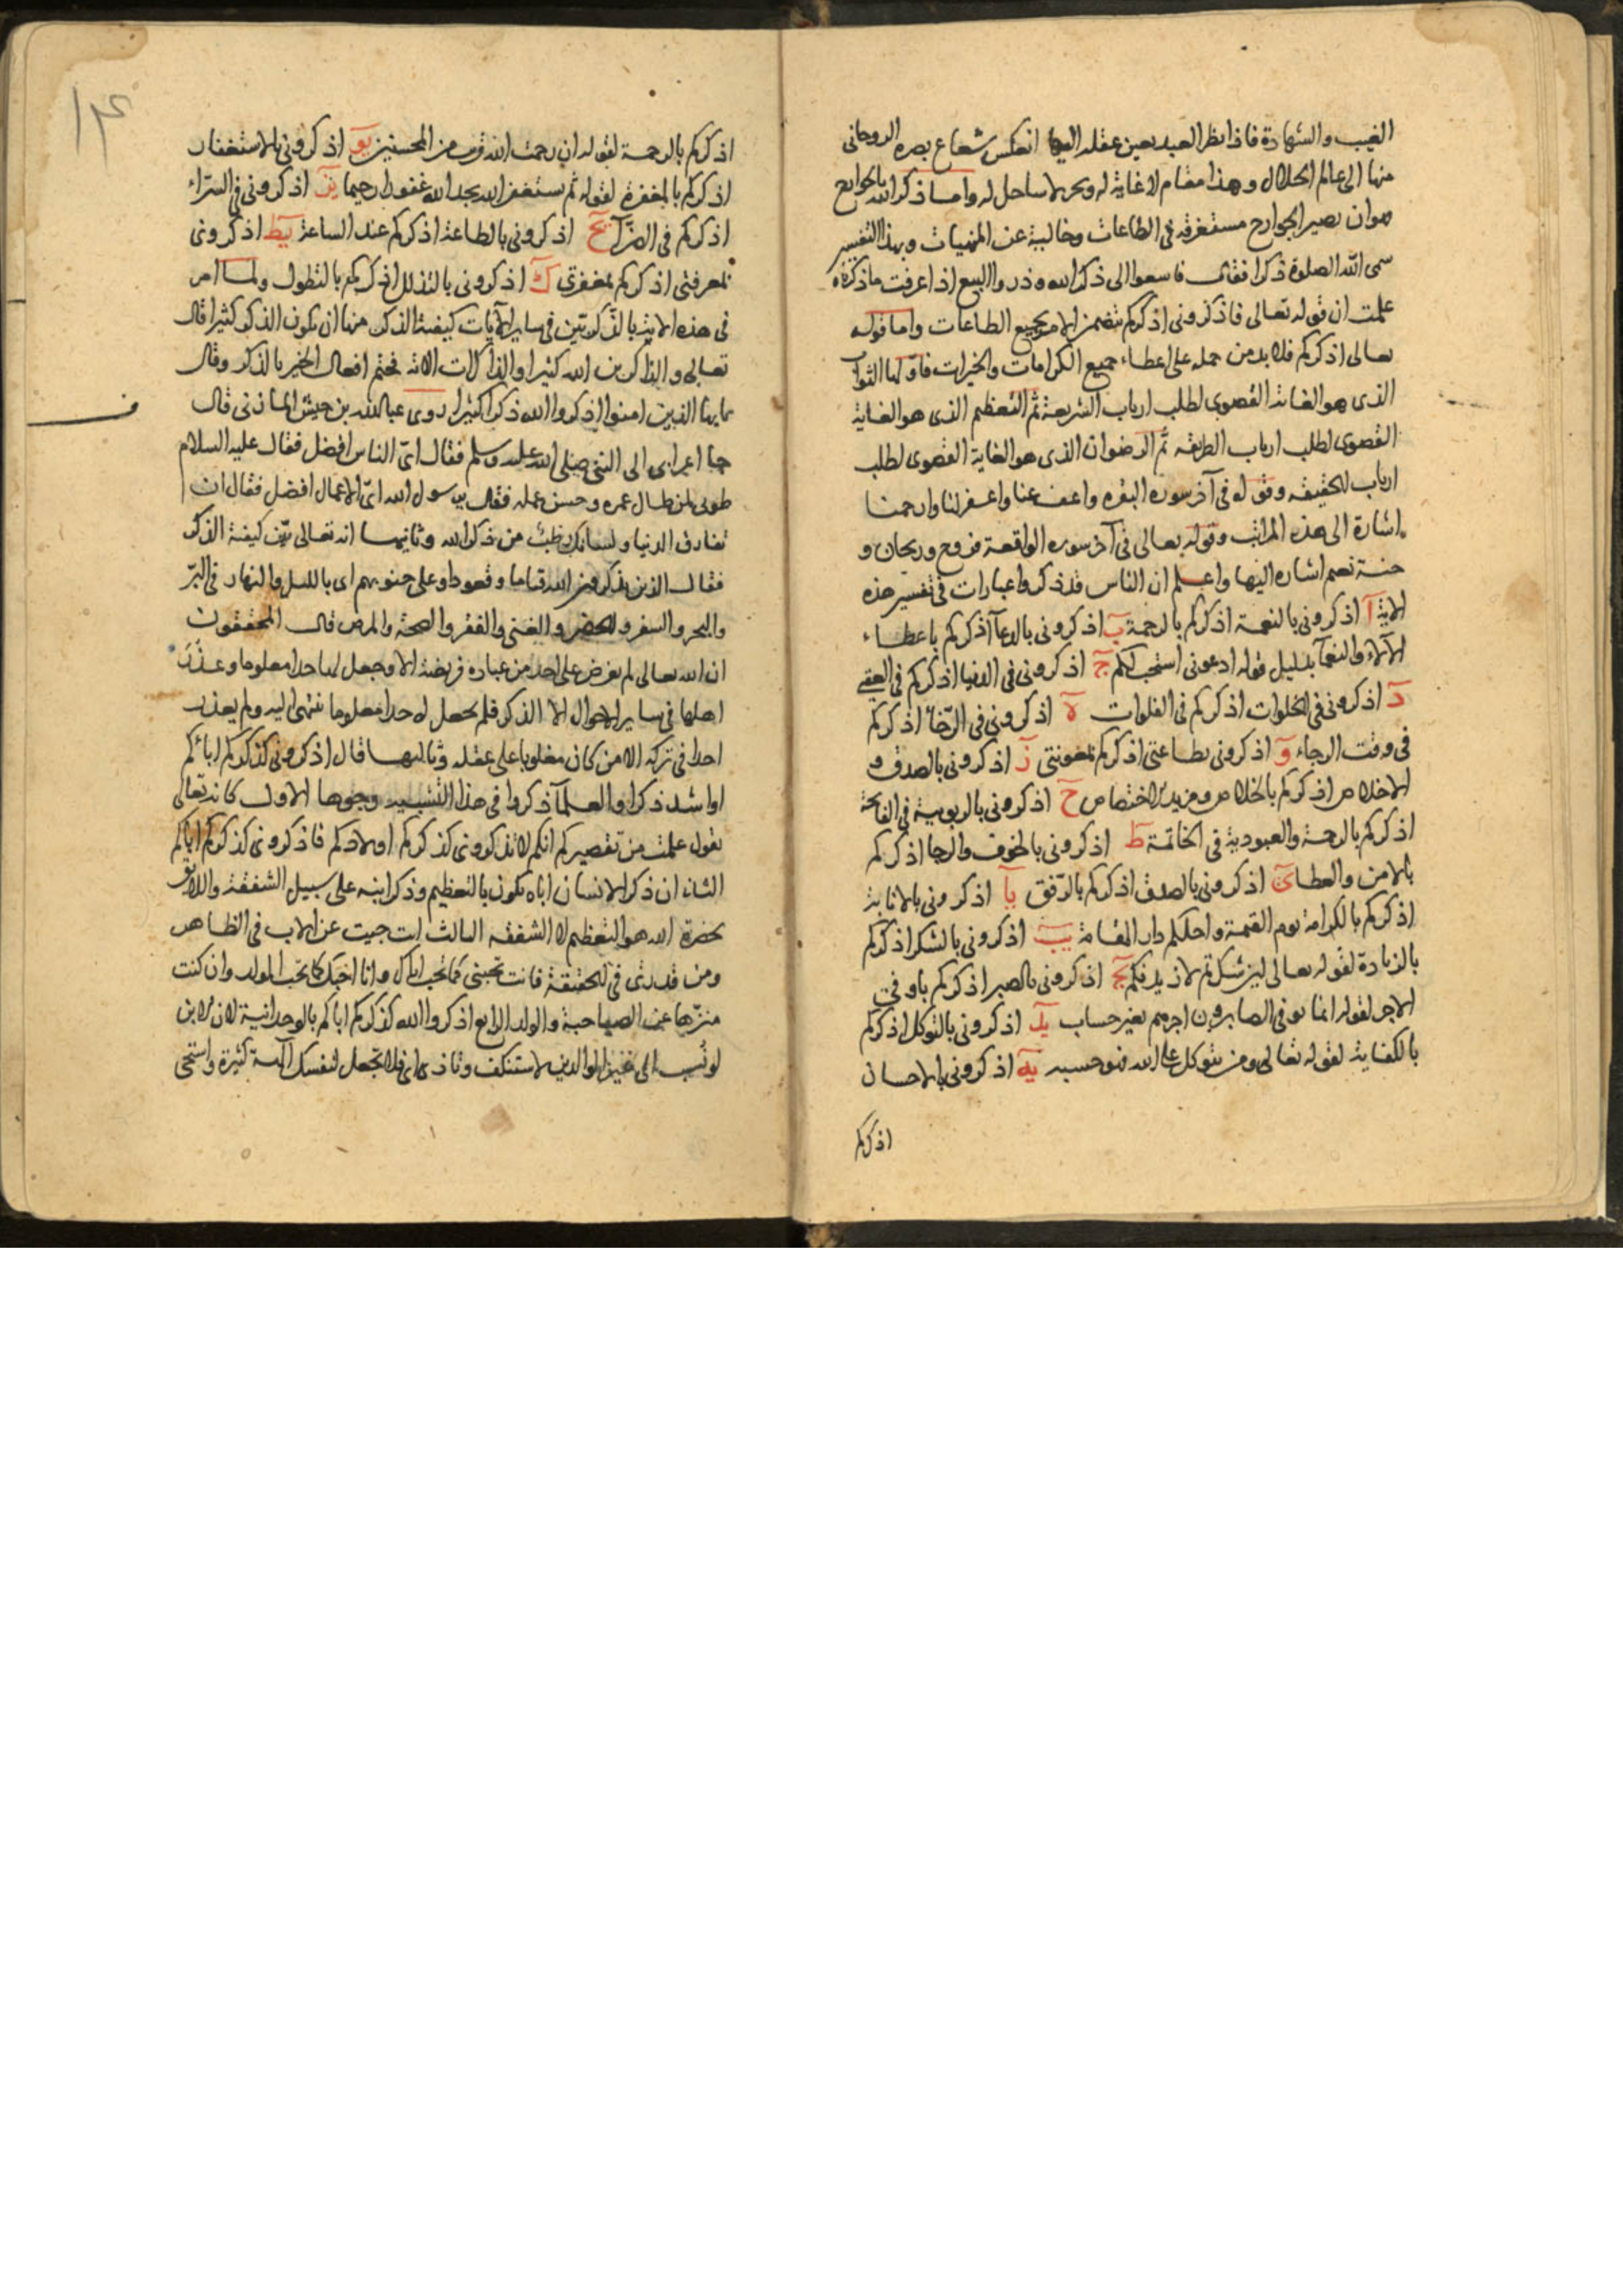 الغيب والشهادة فاذا نظر العبد بعين عقله اليها انعكس شعاع بصره الروحانى
منها الى عالم الجلال وهذا مقام لا غاية له وبحر لا ساحل له واما ذكر الله بالجوارح
هو ان يصير الجوارح مستغرقه فى الطاعات وخالية عن المنهيات وبهذا التفسير
سمى الله الصلوة ذكرا فقال فاسعوا الى ذكر الله وذروا البيع اذا عرفت ما ذكرناه
علمت ان قوله تعالى فاذكرونى اذكركم يتضمن الامر بجميع الطاعات واما قوله
تعالى اذكركم فلا بد من حمله على اعطاء جميع الكرامات والخيرات فاولها الثواب
الذى هو الغاية القصوى لطلب ارباب الشريعة ثم التعظيم الذى هو الغاية
القصوى لطلب ارباب الطريقه ثم الرضوان الذى هو الغاية القصوى لطلب
ارباب الحقيقه وقوله فى آخر سوره البقره واعف عنا واغفر لنا وارحمنا
اشارة الى هذه المراتب وقوله تعالى فى آخر سوره الواقعة فروح وريحان و
جنة نعيم اشاره اليها واعلم ان الناس قد ذكروا عبارات فى تفسير هذه
الاية آ اذكرونى بالنعمة اذكركم بالرحمة ب اذكرونى بالدعآ اذكركم باعطاء
الآلاء والنعمآ بدليل قوله ادعونى استجب لكم ج اذكرونى فى الدنيا اذكركم فى العقبى
د اذكرونى فى الخلوات اذكركم فى الفلوات ه اذكرونى فى الرخآء اذكركم
فى وقت الرجاء و اذكرونى بطاعتى اذكركم بمعونتى ز اذكرونى بالصدق و
الاخلاص اذكركم بالخلاص ومزيد الاختصاص ح اذكرونى بالربوبية فى الفاتحة
اذكركم بالرحمة والعبودية فى الخاتمة ط اذكرونى بالخوف والرجا اذكركم
بالامن والعطا ى اذكرونى بالصدق اذكركم بالرفق يا اذكرونى بالانابة
اذكركم بالكرامة يوم القيمة واحلكم دار المقامة يب اذكرونى بالشكر اذكركم
بالزيادة لقوله تعالى لئن شكرتم لازيدنكم يج اذكرونى بالصبر اذكركم باوفى
الاجر لقوله انما يوفى الصابرون اجرهم بغير حساب يد اذكرونى بالتوكل اذكركم
بالكفاية لقوله تعالى ومن يتوكل على الله فهو حسبه يه اذكرونى بالاحسان
اذكركم
١٤
اذكركم بالرحمة لقوله ان رحمت الله قريب من المحسنين يو اذكرونى بالاستغفار
اذكركم بالمغفرة لقوله ثم يستغفر الله يجد الله غفورا رحيما يز اذكرونى فى السراء
اذكركم فى الضرآ يح اذكرونى بالطاعة اذكركم عند الساعة يط اذكرونى
بمعرفتى اذكركم بمغفرتى ك اذكرونى بالتذلل اذكركم بالتطول ولما امر
فى هذه الاية بالذكر بين فى ساير الآيات كيفية الذكر منها ان يكون الذكر كثيرا قال
تعالى والذاكرين الله كثيرا والذاكرات الاية فختم افعال الخير بالذكر وقال
يا ايها الذين امنوا اذكروا الله ذكرا كثيرا روى عبد الله بن المازنى قال
جا اعرابى الى النبى صلى الله عليه وسلم فقال اى الناس افضل فقال عليه السلام
طوبى لمن طال عمره وحسن عمله فقال يا رسول الله اى الاعمال افضل فقال ان
تفارق الدنيا ولسانك رطب من ذكر الله وثانيها انه تعالى بين كيفية الذكر
فقال الذين يذكرون الله قياما وقعودا وعلى جنوبهم اى بالليل والنهار فى البر
والبحر والسفر والحضر والغنى والفقر والصحة والمرض قال المحققون
ان الله تعالى لم يفرض على احد من عباده فريضة الا وجعل لها حدا معلوما وعذر
اهلها فى ساير الاحوال الا الذكر فلم يجعل له حدا معلوما ينتهى اليه ولم يعذر
احدا فى تركه الا من كان مغلوبا على عقله وثالثها قال اذكرونى كذكركم ابائكم
او اشد ذكرا والعلمآ ذكروا فى هذا التشبيه وجوها الاول كانه تعالى
يقول علمت من تقصيركم انكم لا تذكرونى كذكركم اولادكم فاذكرونى كذكركم اباكم
الثانى ان ذكر الانسان اباه يكون بالتعظيم وذكر ابنه على سبيل الشفقة واللايق
بحضرة الله هو التعظيم لا الشفقه الثالث انت جيت عن الاب فى الظاهر
ومن قدرتى فى الحقيقة فانت تحبنى كما تحب اباك وانا احبك كما تحب الولد وان كنت
منزها عن الصاحبة والولد الرابع اذكروا الله كذكركم اباكم بالوحدانية لان الابن
لو نسب الى غير الوالدين لاستنكف وتاذى اى فلا تجعل لنفسك آلهة كثيرة واستحى